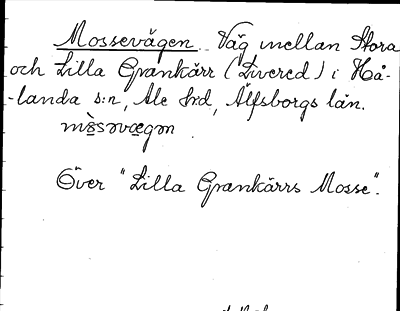 Mossevägen Väg mellan Stora
och Lilla Grankärr (Livered) i Hå-
-landa s:n, Ale hrd, Älfsborgs län.
mɷ̀sәvægәn.
Över "Lilla Grankärrs Mosse".